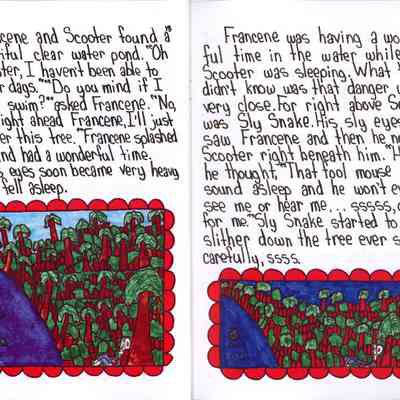 cene and Scooter found a
iful clear water pond. "Oh
ter, I haven't been able to
r days." "Do you mind if I
swim?" asked Francene. "No,
ight ahead Francene, I'll just
er this tree." Francene splashed
nd had a wonderful time.
s eyes soon became very heavy
fell asleep.
Francene was having a wo
ful time in the water while
Scooter was sleeping. What
didn't know was that danger w
very close. For right above Sc
was Sly Snake. His sly eyes
saw Francene and then he no
Scooter right beneath him. "H
he thought, "That fool mouse
sound asleep and he won't e
see me or hear me... sssss,
for me." Sly Snake started to
slither down the tree ever s
carefully, ssss.